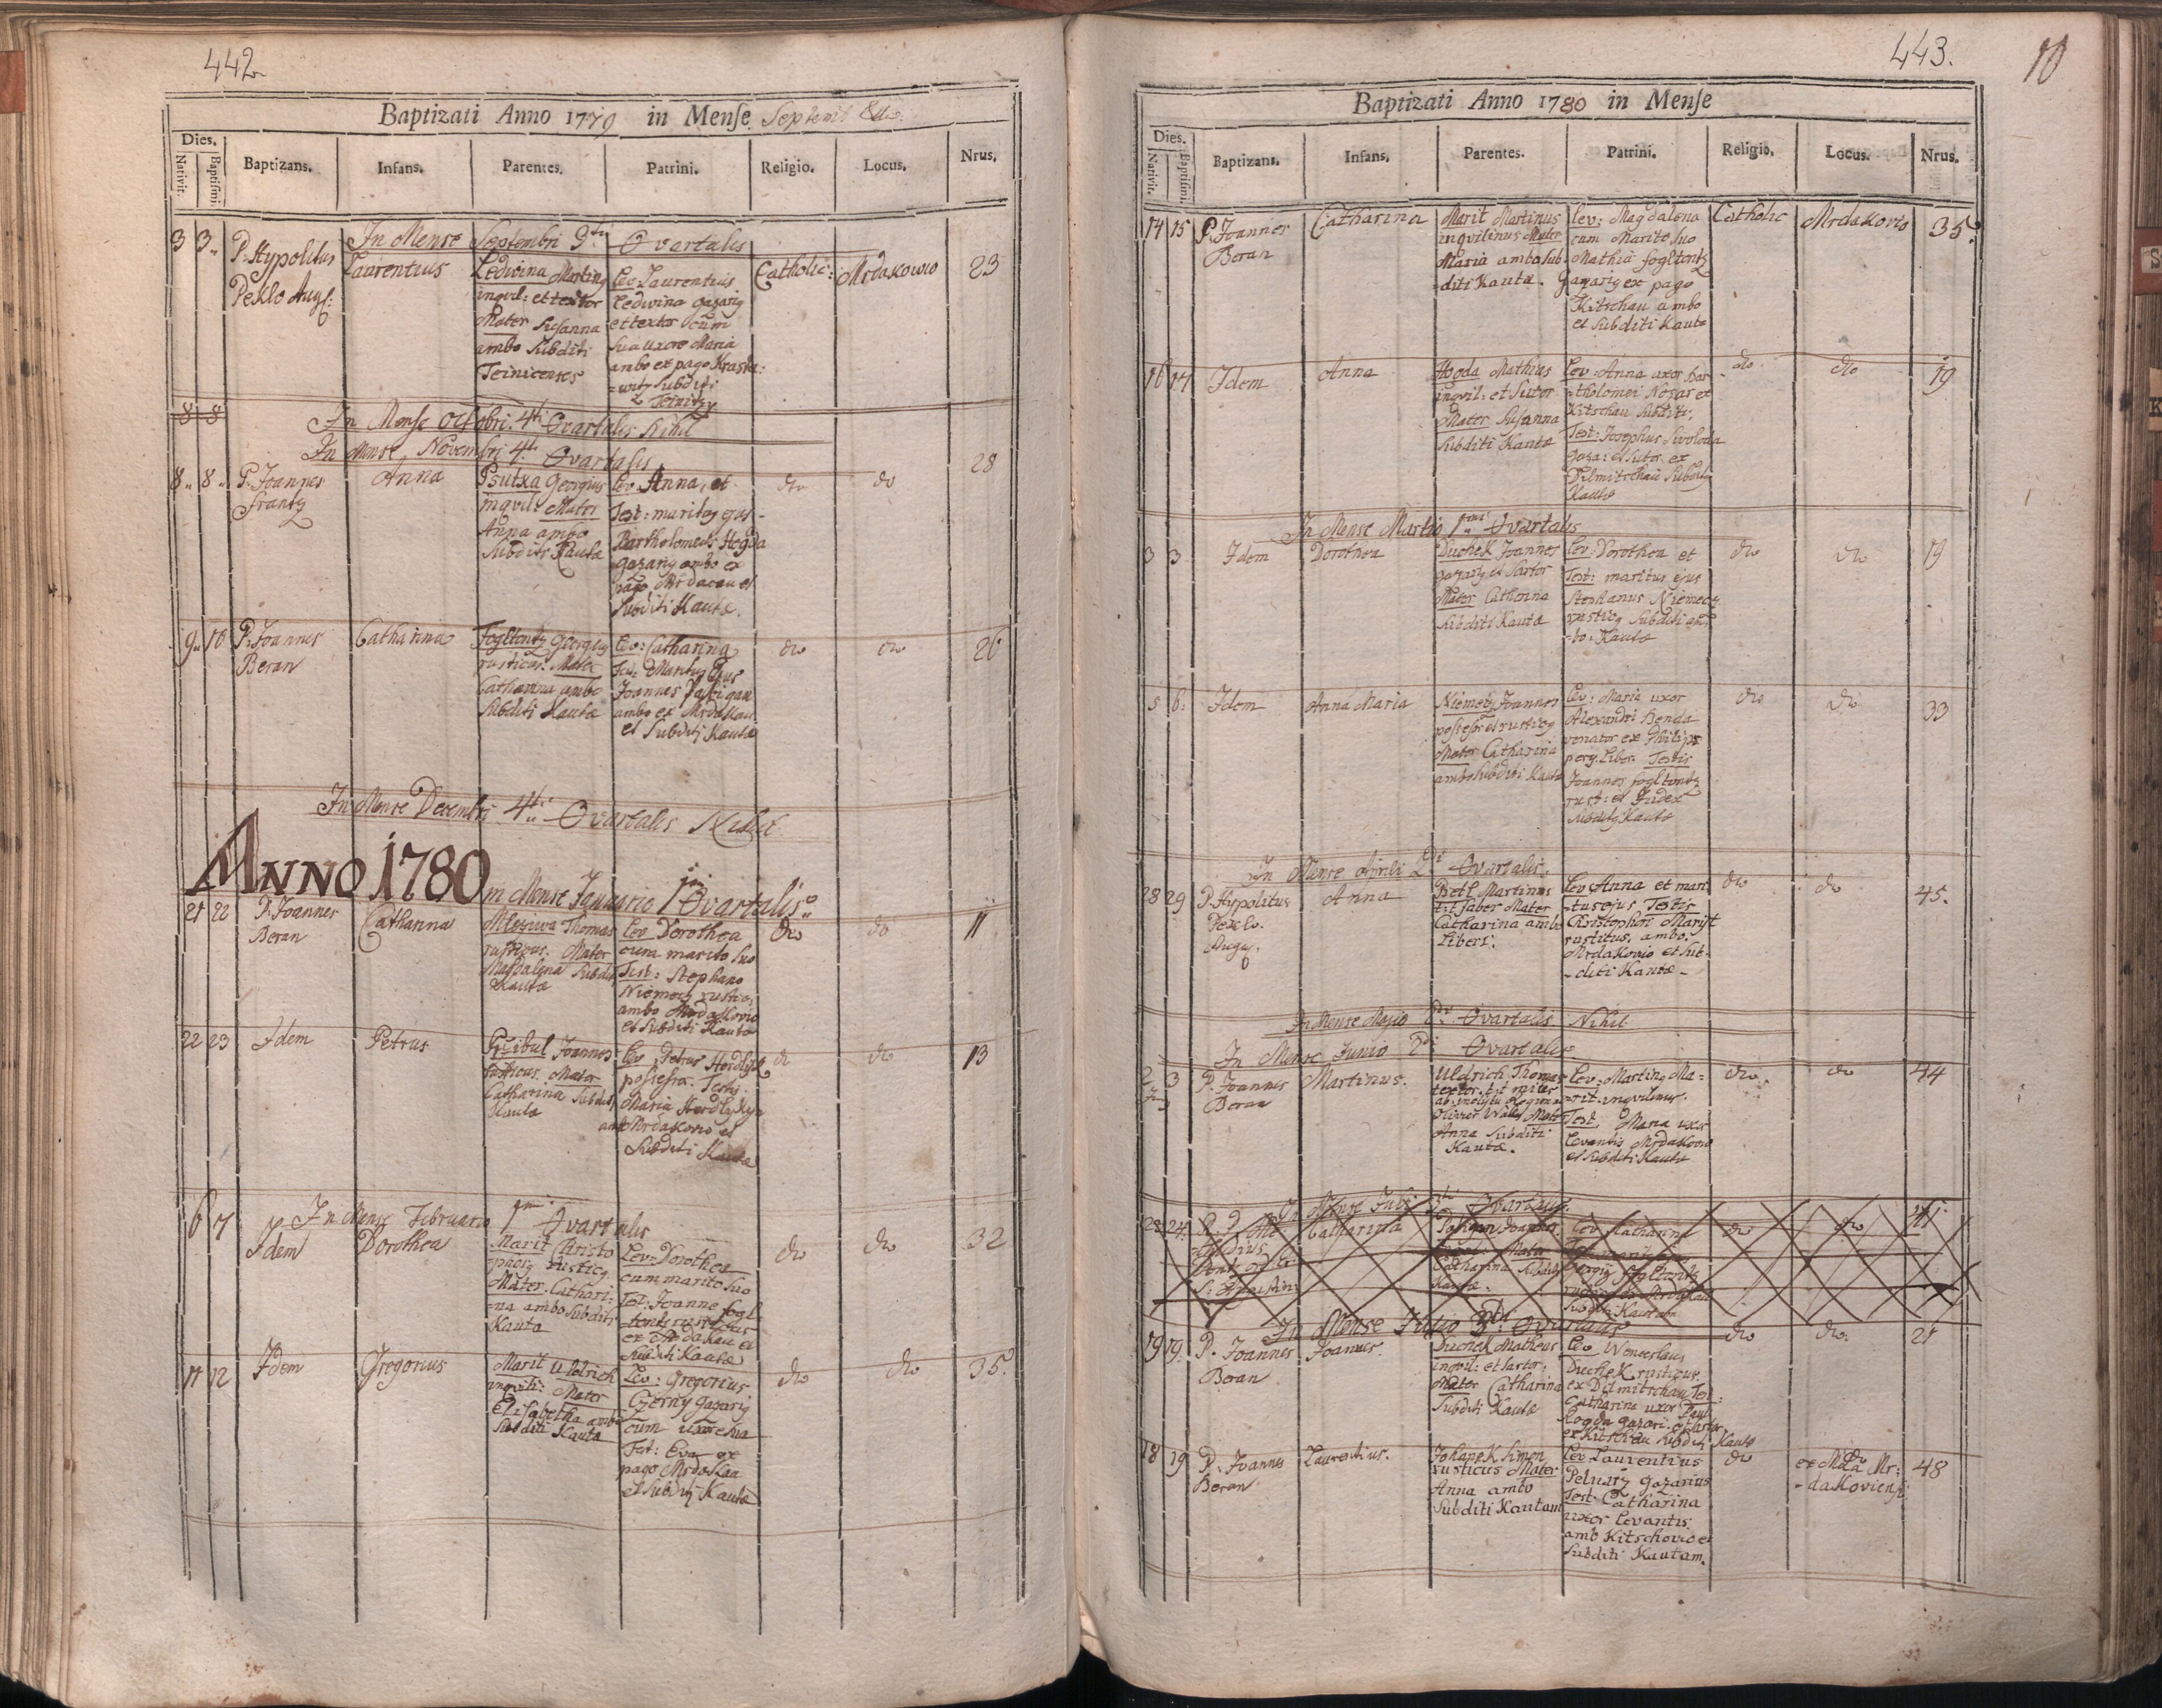 442
Baptizati Anno 1779 in Mense Septemb
Dies.
Nativit.
Baptismi
Baptizans.
Infans.
Parentes.
Patrini.
Religio.
Locus.
Nrus.
In Mense Septembri 3tii Qvartalis
3 3
P. Hypolitus
Peklo Aug:
Laurentius
Ledwina Martin
inqvil: et textor
Mater Susanna
ambo Subditi
Teinicenses
Lev Laurentius
Ledwina gazarig
et textor cum
sua uxore Maria
ambo ex pago
Subditi
Teinitz
Catholic:
Mrdakowio
23
8 8
In Mense Octobri 4ti Qvartalis Nihil
In Mense Novembri 4ti Qvartalis
8 8
P. Joannes
Frantz
Anna
Psutka Georgius
inqvil: Mater
Anna ambo
Subditi Kautae
Lev Anna, et
Test: maritus ejus
Bartholomeus Hogda
gazarig ambo ex
pago Mrdacau et
Subditi Kautae.
do
do
28
9 10
P. Joannes
Beran
Catharina
Fogltontz Georgig
rusticus. Mater
Catharina ambo
Subditi Kautae
Lev: Catharina
Test: Maritus Ejus
Joannes
ambo ex Mrdakau
et Subditi Kautae
do
do
26
In Mense Decembri 4ti Qvartalis Nihil.
ANNO 1780
in Mense Januario 1mi Qvartalis
21 22
P. Joannes
Beran
Catharina
Mleziwa Thomas
rusticus. Mater
Magdalena Subditi
Kautae
Lev Dorothea
cum marito suo
Test: Stephano
Niemetz rustico,
ambo Mrdakovio
et Subditi Kautae
do
do
11
22 23
Idem
Petrus
Przibul Joannes
rusticus. Mater
Catharina Subditi
Kautae
Lev Petrus
possessor. Testis
Maria
ambo Mrdakovio et
Subditi Kautae
do
do
13
In Mense Februario 1mi Qvartalis
6 7
Idem
Dorothea
Marit Christo
phorg rusticg
Mater. Cathari:
=na ambo Subditi
Kautae
Lev: Dorothea
cum marito suo
Test: Joanne Fogl
tontz rusticus
ex Mrdakau et
Subditi Kautae
do
do
32
11 12
Idem
Gregorius
Marit Uldrich
inqvili: Mater
Elisabetha ambo
Subditi Kautae
Lev: Gregorius
Czerny gazarig
cum uxore sua
Test: Eva ex
pago Mrdakau
et Subditi Kautae
do
do
35.
443.
10
Baptizati Anno 1780 in Mense
Dies.
Nativit.
Baptismi
Baptizans.
Infans.
Parentes.
Patrini.
Religio.
Locus.
Nrus.
14 15
P. Joannes
Beran
Catharina
Marit Martinus
inqvilinus Mater
Maria ambo Sub
=diti Kautae.
Lev: Magdalena
cum Marito suo
Mathia Fogltontz
Gazarig ex pago
Kitschau ambo
et Subditi Kautae
Catholic
Mrdakovio
35.
16 17
Idem
Anna
Hogda Mathias
inqvil: et Sutor
Mater Susanna
Subditi Kautae
Lev. Anna uxor Bar
=tholomei Nozar ex
Kitschau Subditi.
Test: Josephus Swoboda
gaza: et Sutor ex
Dilmitschau Subditi
Kautae
do
do
19
In Mense Martio 1mi Qvartalis
3 3
Idem
Dorothea
Duchek Joannes
gazarig et Sartor
Mater Catharina
Subditi Kautae
Lev: Dorothea et
Test: maritus ejus
Stephanus Niemetz
rusticg Subditi am
=bo. Kautae
do
do
19
5 6
Idem
Anna Maria
Niemetz Joannes
possessor et rusticg
Mater Catharina
ambo Subditi Kautae
Lev: Maria uxor
Alexandri Benda
venator ex Philips
perg. Liber. Testis
Joannes Fogltontz
rust: et Judex
Subditg Kautae
do
do
33
In Mense Aprili 2di Qvartalis.
28 29
P. Hypolitus
Peklo.
Aug.
Anna
Betl Martinus
Faber Mater
Catharina ambo
Liberi.
Lev Anna et mari
=tus ejus Testis
Christophori Marzit
rusticus. ambo.
Mrdakovio et Sub
=diti Kautae
do
do
45.
In Mense Majo 2di Qvartalis Nihil
In Mense Junio 2di Qvartalis
2 3
P. Joannes
Beran
Martinus.
Uldrich Thomas
textor. t.t. miles
ab inclyta Regimen
Olivier Wallis Mater
Anna Subditi
Kautae.
Lev: Marting Ma=
=rit. inqvilinus.
Test. Maria uxor
Levantis Mrdakovio
et Subditi Kautae
do
do
44
In Mense Qvartalis
23 24
Catharina
Joannes
Mater
Catharina Subditi
Kautae.
Lev Catharina
Georgig Fogltontz
Subditi Kautae
do
do
In Mense Julio 3tii Qvartalis
19 19
P. Joannes
Beran
Joannes.
Duchek Matheus
inqvil: et Sartor,
Mater Catharina
Subditi Kautae
Lev Wenceslaus
Duchek rusticus
ex Dilmitschau Test:
Catharina uxor Pauli
Hogda gazari: et Sartor
ex Kitschau Subditi Kautae
do
do.
21
18 19
P. Joannes
Beran
Laurentius.
Johanek Simon
rusticus Mater
Anna ambo
Subditi Kautam
Lev Laurentius
Pelnarz gazarius
Test. Catharina
uxor Levantis
ambo Kitschovio et
Subditi Kautam.
do
do
Mr:
=dakoviensi
48